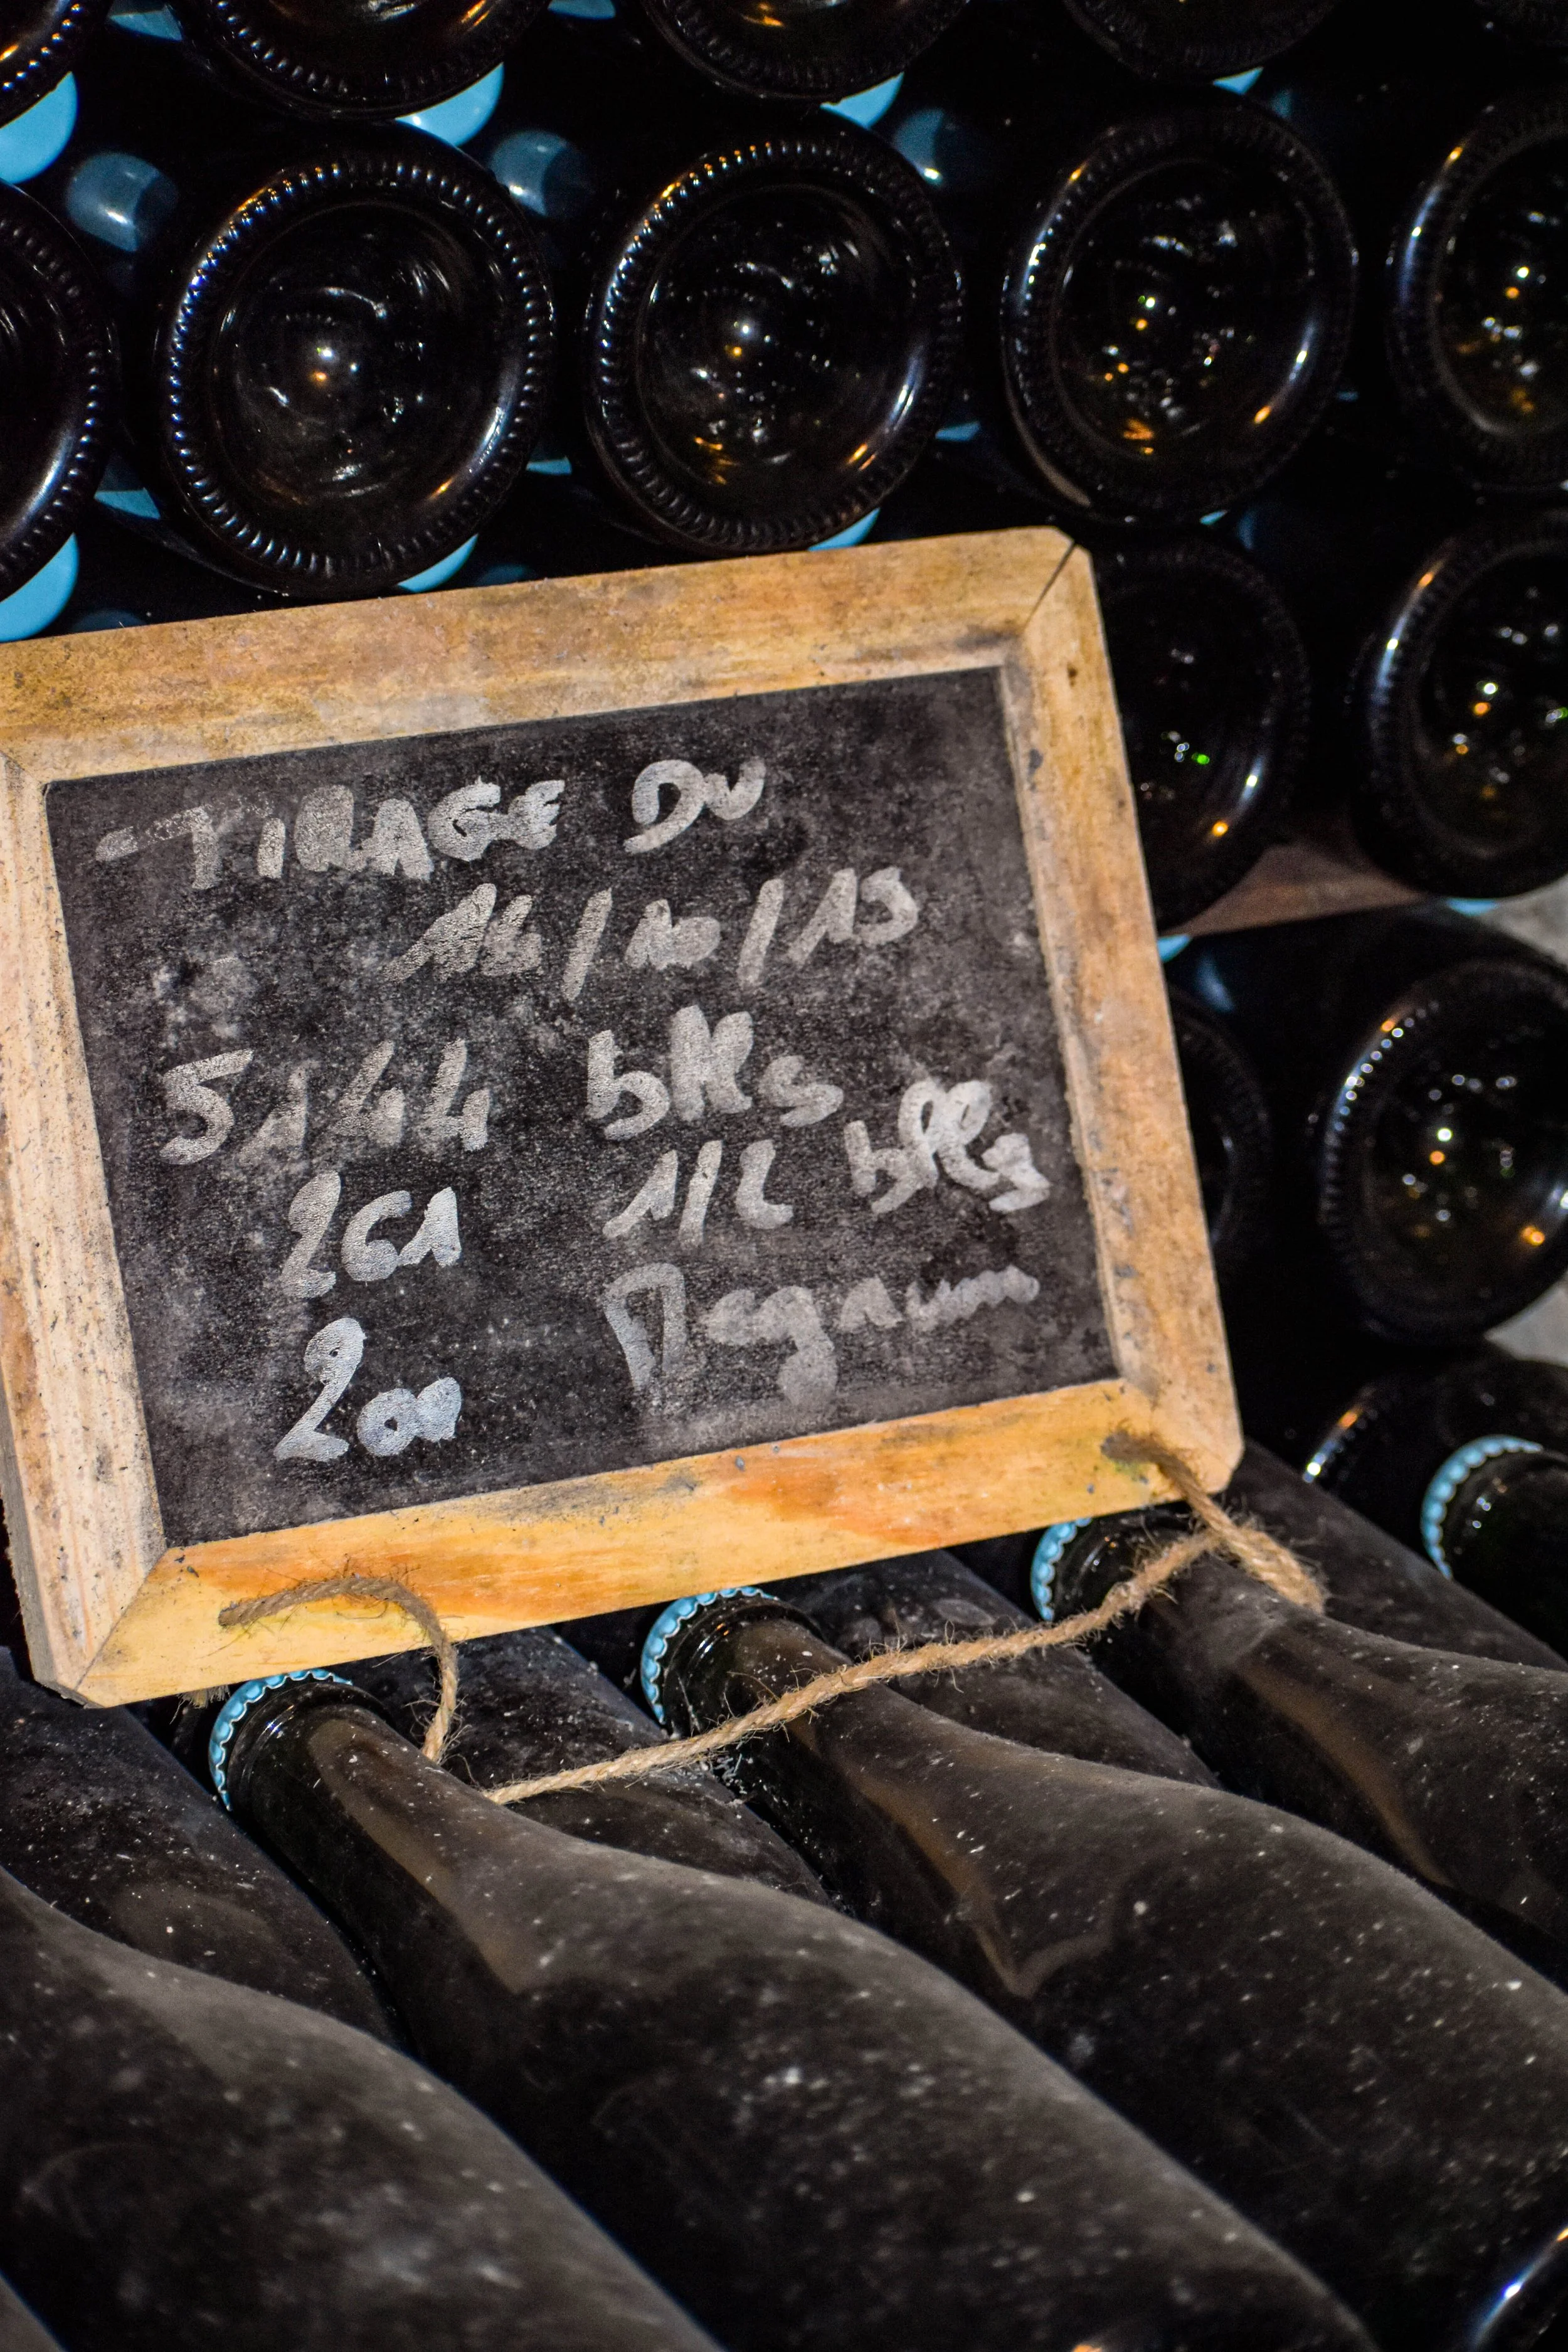 - TIRAGE DU
14/10/15
5144 blles
261 1/2 blles
200 Magnum